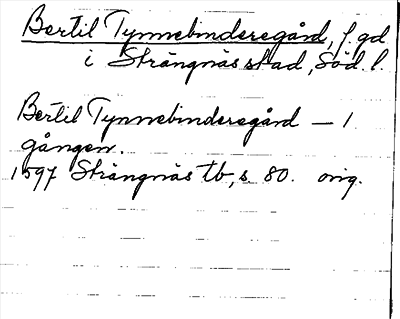 Bertil Tynnebinderegård, f. gd
i Strängnäs stad, Söd. l.
Bertil Tynnebinderegård – 1
gången.
1597 Strängnäs tb, s. 80. orig.